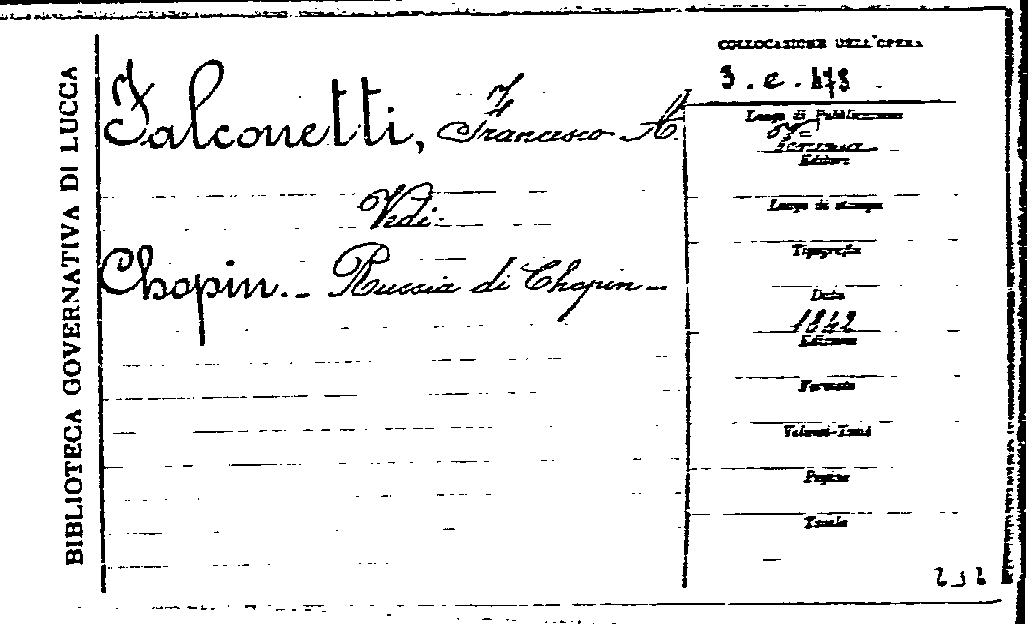 BIBLIOTECA GOVERNATIVA DI LUCCA
Falconetti, Francesco A.
Vedi:
Chopin. - Russia di Chopin -
COLLOCAZIONE DELL'OPERA
3. e. 473
Luogo di Pubblicazione
Editore
Luogo di stampa
Tipografia
Data
1842
Edizione
Formato
Volumi-Tomi
Pagine
Tavole